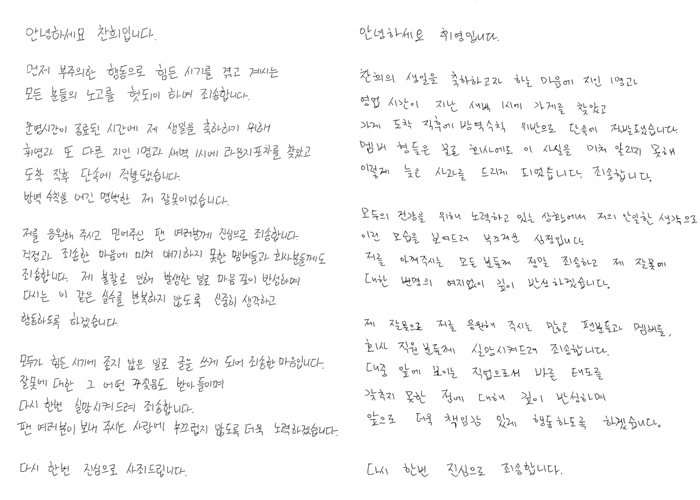 안녕하세요 찬희입니다.
먼저 부주의한 행동으로 힘든 시기를 겪고 계시는
모든 분들의 노고를 헛되이 하여 죄송합니다.
운영시간이 종료된 시간에 제 생일을 축하하기 위해
휘영과 또 다른 지인 1명과 새벽 1시에 라운지포차를 찾았고
도착 직후 단속에 적발됐습니다.
방역 수칙을 어긴 명백한 제 잘못이었습니다.
저를 응원해 주시고 믿어주신 팬 여러분께 진심으로 죄송합니다.
걱정과 죄송한 마음에 미처 얘기하지 못한 멤버들과 회사분들께도
죄송합니다. 제 불찰로 인해 발생한 일로 마음 깊이 반성하며
다시는 이 같은 실수를 반복하지 않도록 신중히 생각하고
행동하도록 하겠습니다.
모두가 힘든 시기에 좋지 않은 일로 글을 쓰게 되어 죄송한 마음입니다.
잘못에 대한 그 어떤 꾸짖음도 받아들이며
다시 한번 실망시켜드려 죄송합니다.
팬 여러분이 보내 주시는 사랑에 부끄럽지 않도록 더욱 노력하겠습니다.
다시 한번 진심으로 사죄드립니다.
안녕하세요 휘영입니다.
찬희의 생일을 축하하고자 하는 마음에 지인 1명과
영업 시간이 지난 새벽 1시에 가게를 찾았고
가게 도착 직후에 방역수칙 위반으로 단속에 적발됐습니다.
멤버 형들은 물론 회사에도 이 사실을 미처 알리지 못해
이렇게 늦은 사과를 드리게 되었습니다. 죄송합니다.
모두의 건강을 위해 노력하고 있는 상황에서 저의 안일한 생각으로
이런 모습을 보여드려 부끄러운 심정입니다.
저를 아껴주시는 모든 분들께 정말 죄송하고 제 잘못에
대한 변명의 여지없이 깊이 반성하겠습니다.
제 잘못으로 저를 응원해 주시는 많은 팬분들과 멤버들,
회사 직원분들께 실망시켜드려 죄송합니다.
대중 앞에 보이는 직업으로서 바른 태도를
갖추지 못한 점에 대해 깊이 반성하며
앞으로 더욱 책임감 있게 행동하도록 하겠습니다.
다시 한번 진심으로 죄송합니다.